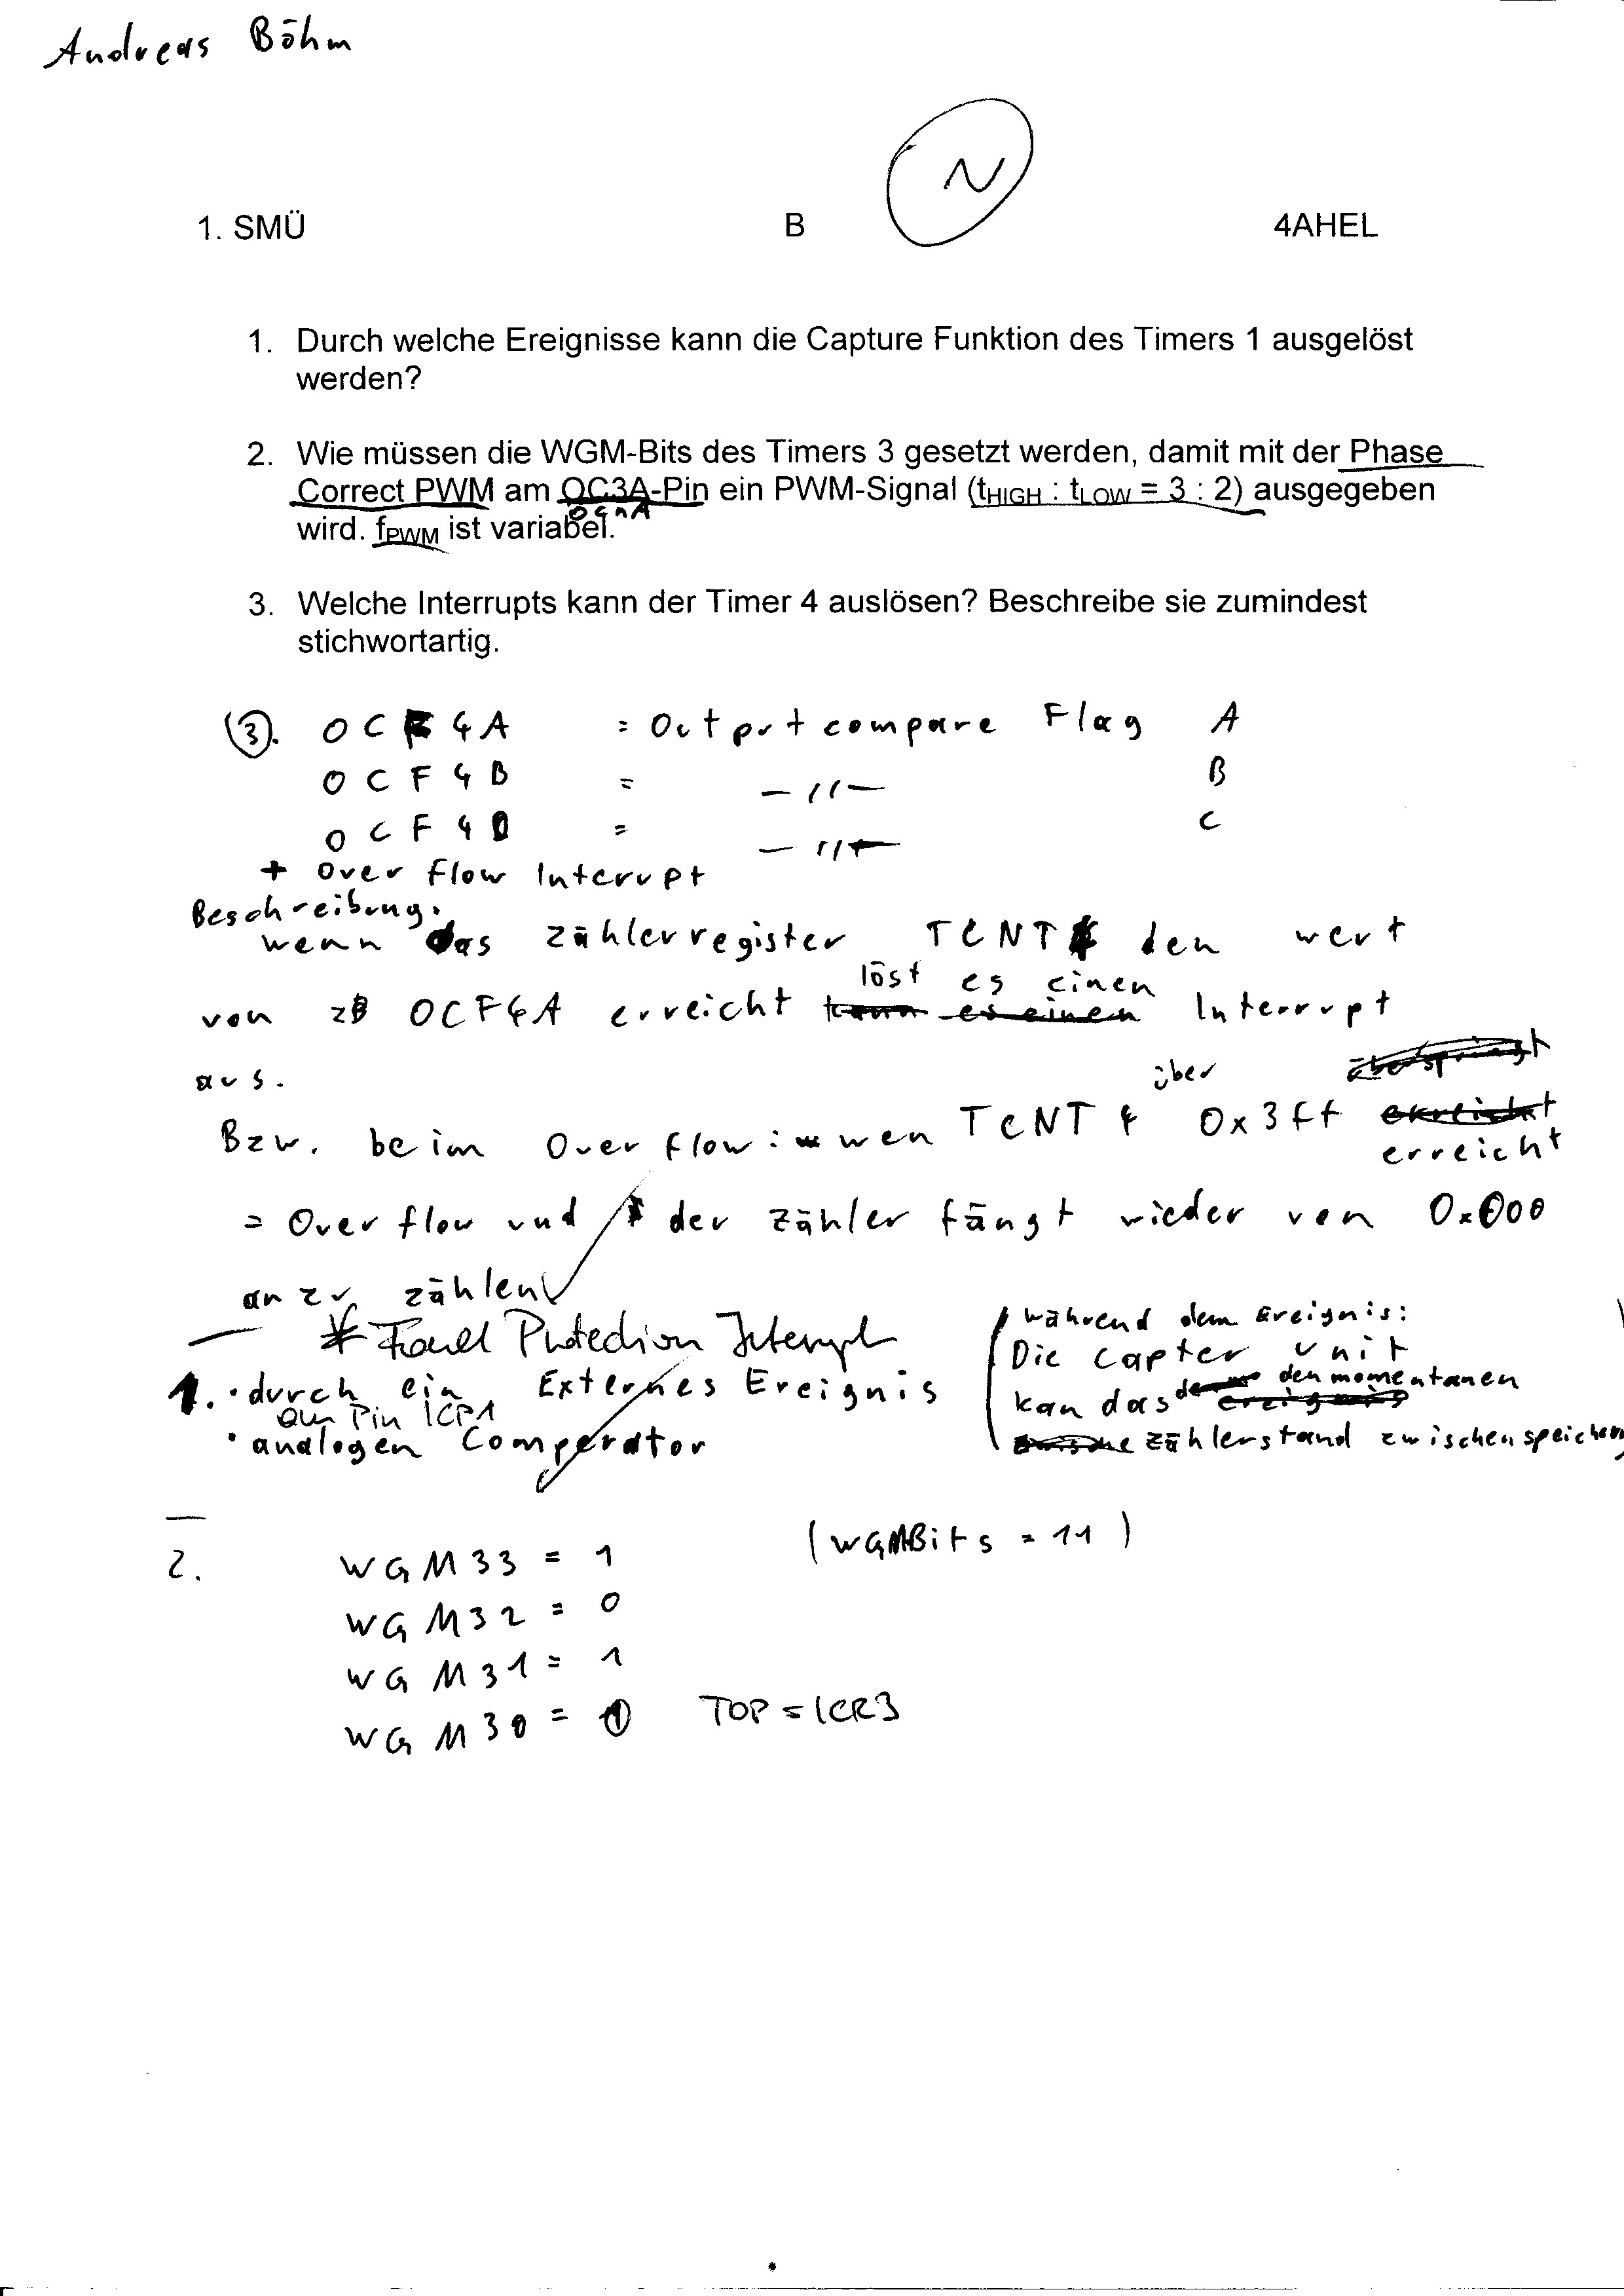 Andreas Böhm
N
1. SMÜ B 4AHEL
1. Durch welche Ereignisse kann die Capture Funktion des Timers 1 ausgelöst
werden?
2. Wie müssen die WGM-Bits des Timers 3 gesetzt werden, damit mit der Phase
Correct PWM am OC3A-Pin ein PWM-Signal (tHIGH : tLOW = 3 : 2) ausgegeben
OCnA
wird. fPWM ist variabel.
3. Welche Interrupts kann der Timer 4 auslösen? Beschreibe sie zumindest
stichwortartig.
3. OCF4A = Output compare Flag A
OCF4B = -//- B
OCF4D = -//- C
+ Over flow Interrupt
Beschreibung:
wenn das zählerregister TCNT4 den wert
von zB OCF4A erreicht löst es einen Interrupt
aus.
Bzw. beim Over flow: wen TCNT4 über 0x3ff
erreicht
= Over flow und der zähler fängt wieder von 0x000
an zu zählen
* Protection Interrupt
1. · durch ein Externes Ereignis
am Pin ICP1
· analogen Comperator
während dem Ereignis:
Die Capter unit
kan das den momentanen
zählerstand zwischenspeichern
2. WGM33 = 1 (WGMBits = 11)
WGM32 = 0
WGM31 = 1
WGM30 = TOP = ICR3